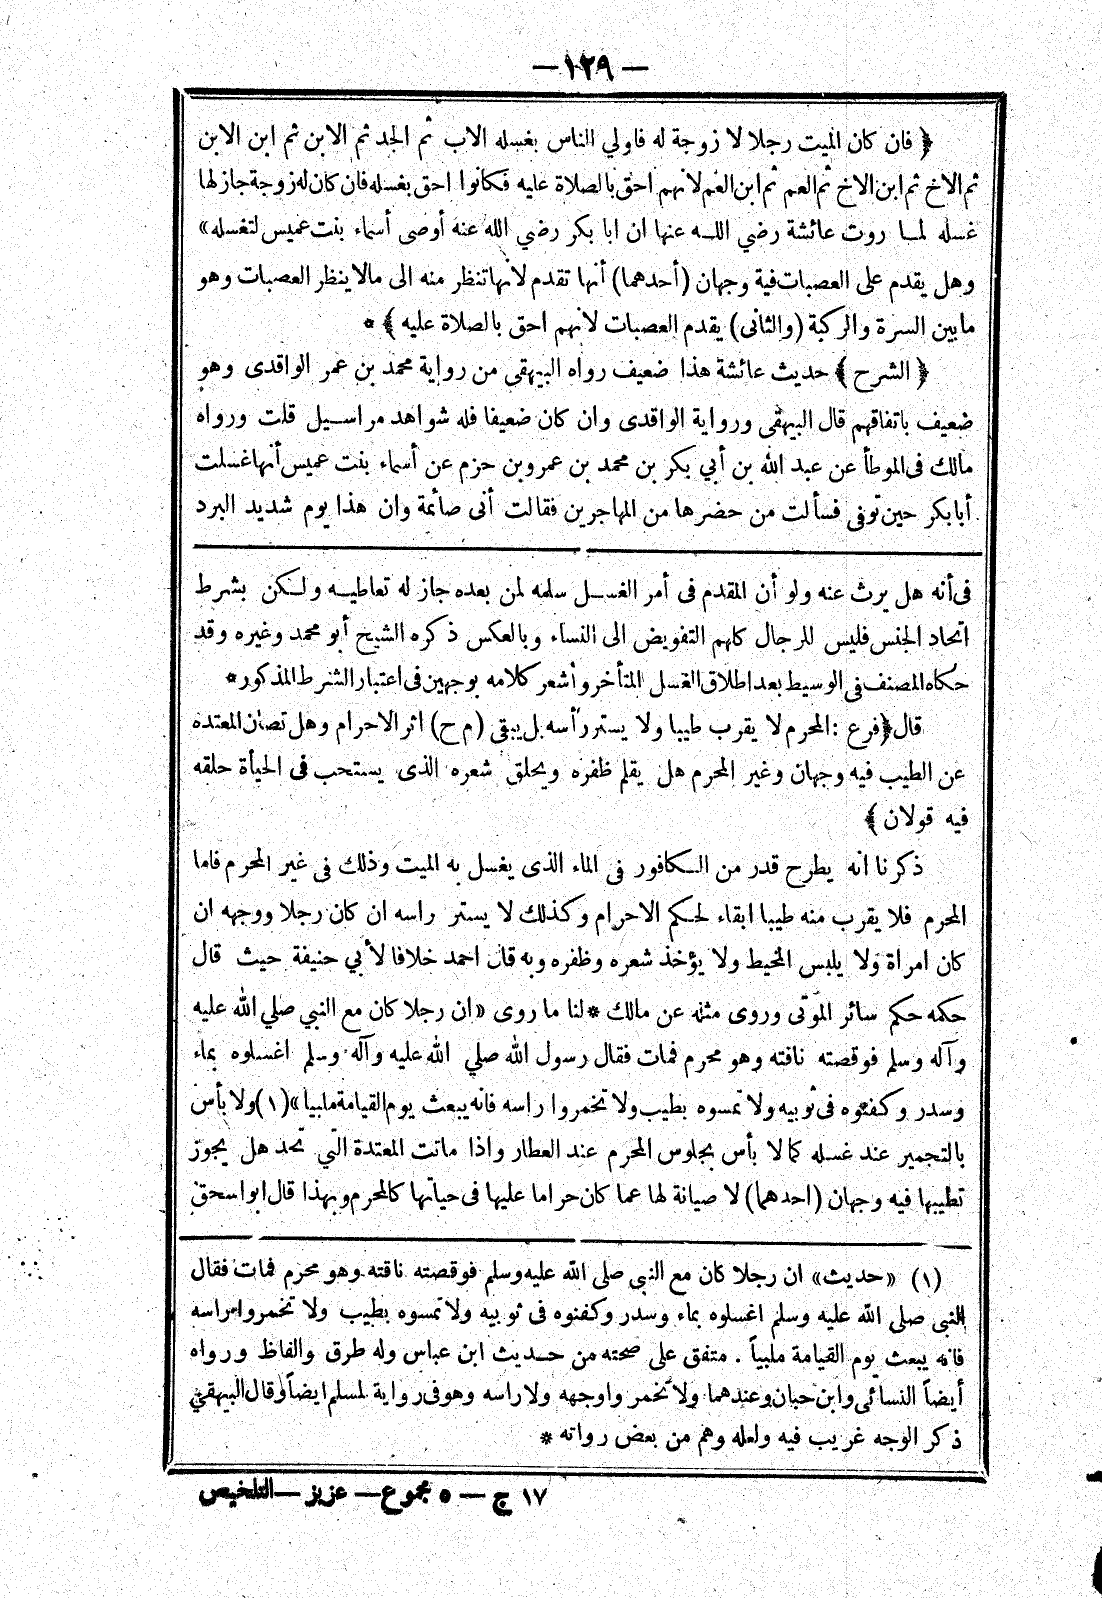 — ١٢٩ —
﴿ فان كان الميت رجلا لا زوجة له فاولي الناس بغسله الاب ثم الجد ثم الابن ثم ابن الابن
ثم الاخ ثم ابن الاخ ثم العم ثم ابن العم لانهم احق بالصلاة عليه فكانوا احق بغسله فان كان له زوجة جاز لها
غسله لما روت عائشة رضي الله عنها ان ابا بكر رضي الله عنه أوصى أسماء بنت عميس لتغسله »
وهل يقدم على العصبات فية وجهان (أحدهما) أنها تقدم لأنها تنظر منه الى مالا ينظر العصبات وهو
مابين السرة والركبة (والثانى) يقدم العصبات لانهم احق بالصلاة عليه ﴾ *
﴿ الشرح ﴾ حديث عائشة هذا ضعيف رواه البيهقى من رواية محمد بن عمر الواقدى وهو
ضعيف باتفاقهم قال البيهقى ورواية الواقدى وان كان ضعيفا فله شواهد مراسيل قلت ورواه
مالك فى الموطأ عن عبد الله بن أبي بكر بن محمد بن عمرو بن حزم عن أسماء بنت عميس أنها غسلت
أبا بكر حين توفى فسألت من حضرها من المهاجرين فقالت أنى صائمة وان هذا يوم شديد البرد
فى أنه هل يرث عنه ولو أن المقدم فى أمر الغسل سلمه لمن بعده جاز له تعاطيه ولكن بشرط
اتحاد الجنس فليس للرجال كلهم التفويض الى النساء وبالعكس ذكره الشيخ أبو محمد وغيره وقد
حكاه المصنف فى الوسيط بعد اطلاق الغسل المتأخر وأشعر كلامه بوجهين فى اعتبار الشرط المذكور *
قال ﴿ فرع : المحرم لا يقرب طيبا ولا يستر رأسه بل يبقى (م ح) اثر الاحرام وهل تصان المعتده
عن الطيب فيه وجهان وغير المحرم هل يقلم ظفره ويحلق شعره الذى يستحب فى الحيأة حلقه
فيه قولان ﴾
ذكرنا انه يطرح قدر من الكافور فى الماء الذى يغسل به الميت وذلك فى غير المحرم فاما
المحرم فلا يقرب منه طيبا ابقاء لحكم الاحرام وكذلك لا يستر راسه ان كان رجلا ووجهه ان
كان امراة ولا يلبس المخيط ولا يؤخذ شعره وظفره وبه قال احمد خلافا لأبي حنيفة حيث قال
حكمه حكم سائر الموتى وروى مثله عن مالك * لنا ما روى « ان رجلا كان مع النبي صلي الله عليه
وآله وسلم فوقصته نافته وهو محرم فمات فقال رسول الله صلي الله عليه وآله وسلم اغسلوه بماء
وسدر وكفنوه فى ثوبيه ولا تمسوه بطيب ولا تخمروا راسه فانه يبعث يوم القيامة ملبيا » (١) ولا بأس
بالتجمير عند غسله كما لا بأس بجلوس المحرم عند العطار واذا ماتت المعتدة التي تحد هل يجوز
تطيبها فيه وجهان (احدهما) لا صيانة لها عما كان حراما عليها فى حياتها كالمحرم وبهذا قال ابو اسحق
(١) « حديث » ان رجلا كان مع النبى صلى الله عليه وسلم فوقصته ناقته وهو محرم فمات فقال
النبى صلى الله عليه وسلم اغسلوه بماء وسدر وكفنوه فى ثوبيه ولا تمسوه بطيب ولا تخمروا راسه
فانه يبعث يوم القيامة ملبياً . متفق على صحته من حديث ابن عباس وله طرق والفاظ ورواه
أيضاً النسائى وابن حبان وعندهما ولا تخمروا وجهه ولا راسه وهو فى رواية لمسلم ايضاً وقال البيهقي
ذكر الوجه غريب فيه ولعله وهم من بعض رواته *
١٧ ج — ٥ مجموع — عزيز — التلخيص